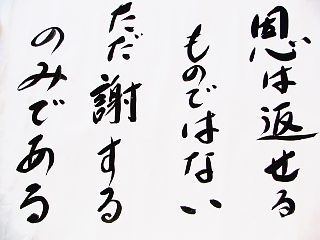 恩は返せる
ものではない
ただ謝する
のみである